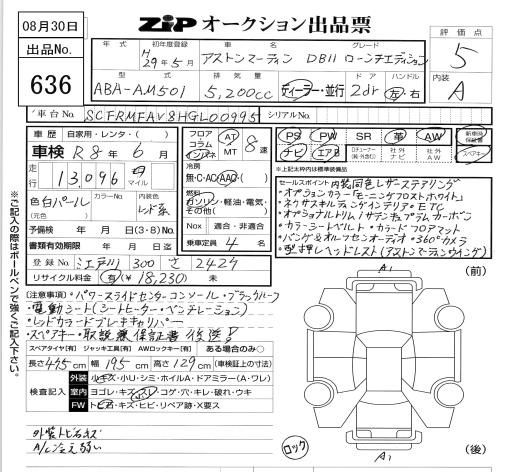 08月30日
ZiP オークション出品票
出品No.
636
年式
初年度登録
車名
グレード
H29年5月
アストンマーティン DB11 ローンチエディション
評価点
5
型式
排気量
ドア
ハンドル
ABA-AM501
5,200cc
ディーラー・並行
2dr
左・右
内装
A
車台No.
SCFRMFAV8HGL00995
シリアルNo.
車歴
自家用・レンタ・( )
車検 R8年 6月
走行
13,096
マイル
色
白パール
(元色)
カラーNo.
内装色
レッド系
予備検 年 月 日(3・8)No.
書類有効期限 年 月 日
登録No.
江戸川 300 さ 2424
リサイクル料金 有(¥18,230) 未
フロア
コラム
インパネ
AT
MT
8速
冷房
無・C・AC・AAC・( )
燃料
ガソリン・軽油・電気・その他( )
Nox
適合・非適合
乗車定員 4 名
PS
PW
SR
革
AW
新車時保証書
ナビ
エアB
社外ナビ
社外AW
スペアキー
※上記太枠内は標準装備品
セールスポイント 内装同色レザーステアリング
・オプションカラー「モーニングフロストホワイト」
・カラーシートベルト・カラードフロアマット
・バング&オルフセンオーディオ・360°カメラ
・型押しヘッドレスト(アストンマーティンウイング)
(注意事項)・パワースライドセンターコンソール・ブラックルーフ
・電動シート(シートヒーター・ベンチレーション)
・レッドカラードブレーキキャリパー
・スペアキー・取説 保証書 後送!
スペアタイヤ[有] ジャッキ工具[有] AWロックキー[有] ある場合のみ○
長さ 475 cm 幅 195 cm 高さ 129 cm (車検証の寸法)
検査記入
外装 小キズ・小U・シミ・ホイルA・ドアミラー(A・ワレ)
室内 ヨゴレ・キズ・スレ・コゲ・穴・キレ・破れ・ウキ
FW トビ石・キズ・ヒビ・リペア跡・X要ス
外装トビ石キズ
A/C冷え弱い
ロック
A1
(前)
A1
(後)
※ご記入の際はボールペンで強くご記入下さい。